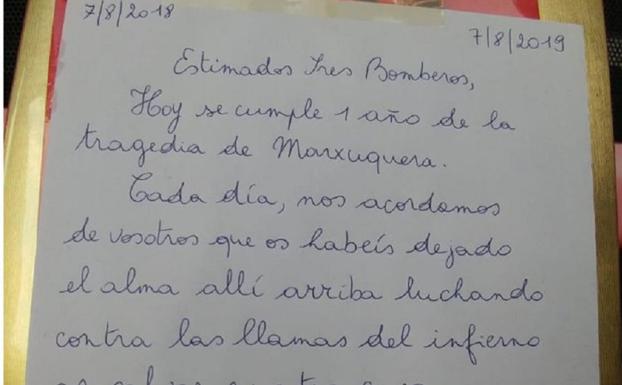 7/8/2018
7/8/2019
Estimados Sres Bomberos,
Hoy se cumple 1 año de la
tragedia de Marxuquera.
Cada día, nos acordamos
de vosotros que os habeís dejado
el alma allí arriba luchando
contra las llamas del infierno